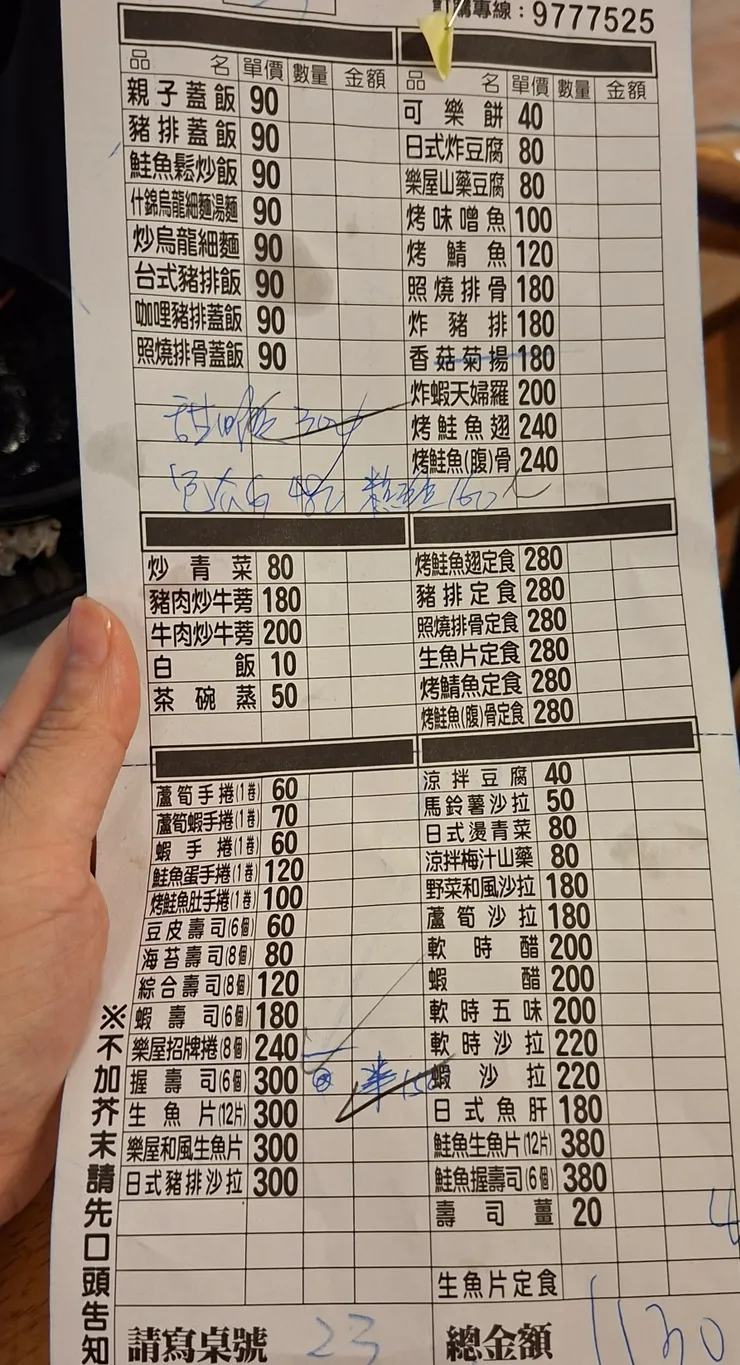 訂購專線：9777525
品名 單價 數量 金額
親子蓋飯 90
豬排蓋飯 90
鮭魚鬆炒飯 90
什錦烏龍細麵湯麵 90
炒烏龍細麵 90
台式豬排飯 90
咖哩豬排蓋飯 90
照燒排骨蓋飯 90
品名 單價 數量 金額
可樂餅 40
日式炸豆腐 80
樂屋山藥豆腐 80
烤味噌魚 100
烤鯖魚 120
照燒排骨 180
炸豬排 180
香菇菊揚 180
炸蝦天婦羅 200
烤鮭魚翅 240
烤鮭魚(腹)骨 240
炒青菜 80
豬肉炒牛蒡 180
牛肉炒牛蒡 200
白飯 10
茶碗蒸 50
烤鮭魚翅定食 280
豬排定食 280
照燒排骨定食 280
生魚片定食 280
烤鯖魚定食 280
烤鮭魚(腹)骨定食 280
蘆筍手捲(1卷) 60
蘆筍蝦手捲(1卷) 70
蝦手捲(1卷) 60
鮭魚蛋手捲(1卷) 120
烤鮭魚肚手捲(1卷) 100
豆皮壽司(6個) 60
海苔壽司(8個) 80
綜合壽司(8個) 120
蝦壽司(6個) 180
樂屋招牌捲(8個) 240
握壽司(6個) 300
生魚片(12片) 300
樂屋和風生魚片 300
日式豬排沙拉 300
涼拌豆腐 40
馬鈴薯沙拉 50
日式燙青菜 80
涼拌梅汁山藥 80
野菜和風沙拉 180
蘆筍沙拉 180
軟時醋 200
蝦醋 200
軟時五味 200
軟時沙拉 220
蝦沙拉 220
日式魚肝 180
鮭魚生魚片(12片) 380
鮭魚握壽司(6個) 380
壽司薑 20
生魚片定食
※不加芥末請先口頭告知
請寫桌號 23
總金額 1130